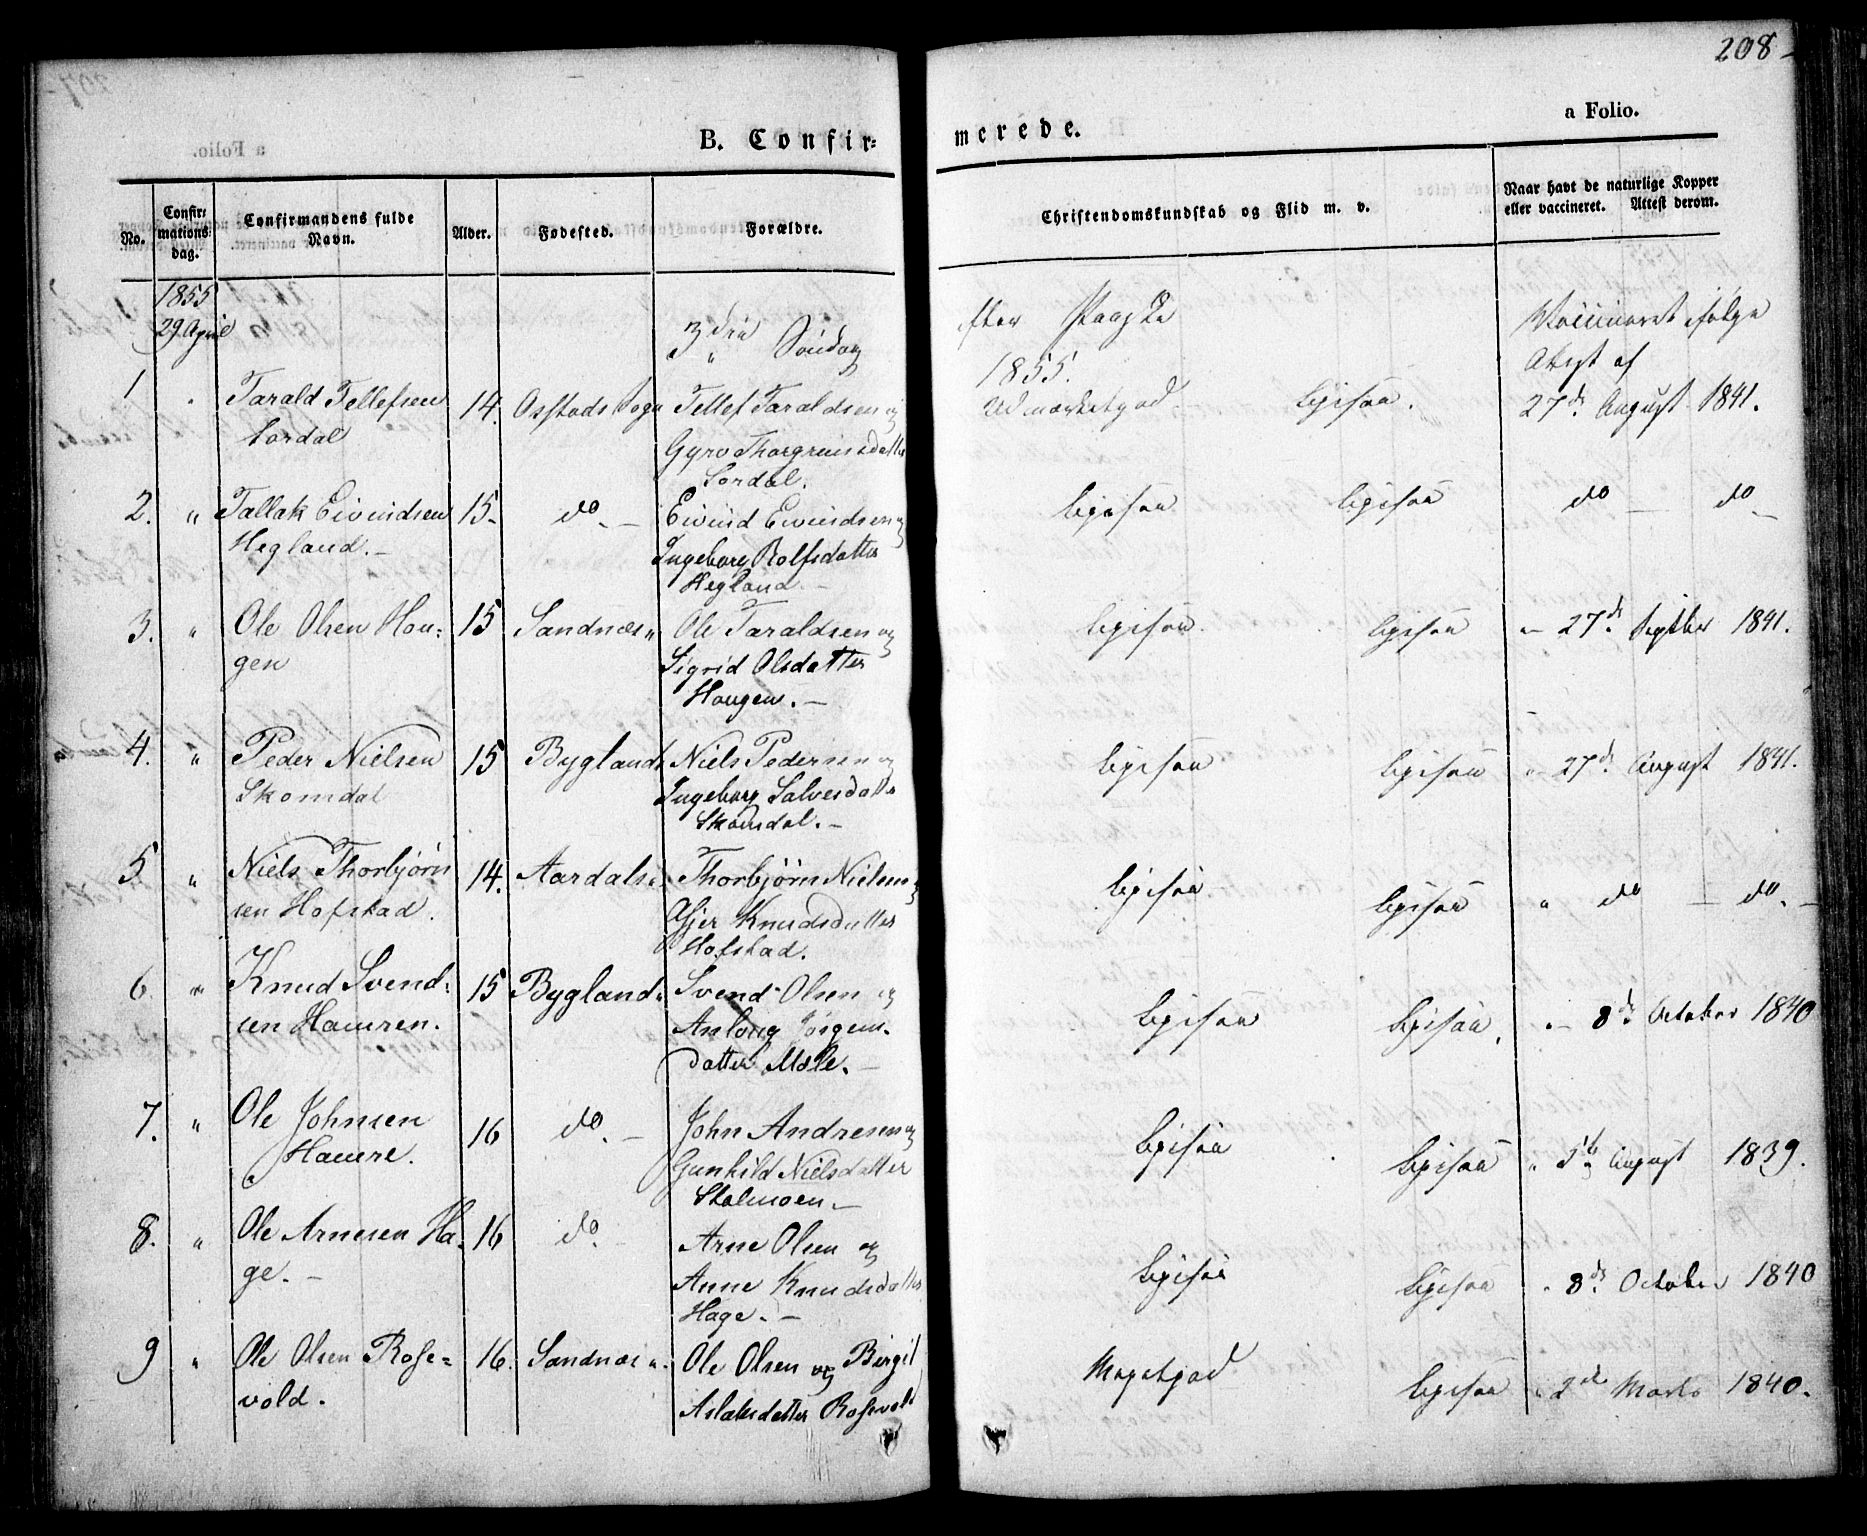 208
B. Confir=
merede.
a Folio.
No.
Confir=
mations
dag.
Confirmandens fulde
Navn.
Alder.
Fødested.
Forældre.
Christendomskundskab og Flid m. v.
Naar havt de naturlige Kopper
eller vaccineret. Attest derom.
1855
29 April
3die Søndag
efter Paaske
1855.
Vaccineret ifølge
Attest af
1 Tarald Tellefsen 14. Sogn Tellef Taraldsen og
Udmærketgod. ligesaa. 27de August 1841.
Sordal
Gyro
Sordal.
2. " Tallak Eivindsen 15 do. Eivind Eivindsen og
ligesaa ligesaa do do
Hegland.
Ingeborg Rolfsdatter
Hegland.
3. " Ole Olsen Hou= 15 Sandnæs " Ole Taraldsen og
ligesaa ligesaa 27de Septbr 1841.
gen
Sigrid Olsdatter
Hougen.
4. " Peder Nielsen 15 Byglands Niels Pedersen og
ligesaa ligesaa " 27de August 1841.
Skomdal
Ingeborg Salvesdatter
Skomdal.
5 " Niels Thorbjørn 14. Aardals " Thorbjørn Nielsen og
ligesaa ligesaa " do do.
sen Hofstad.
Knudsdatter
Hofstad.
6. " Knud Svend= 15 Bygland " Svend Olsen og
ligesaa ligesaa. " 8de October 1840
sen Hameren.
Anlong Jörgens
datter Mole.
7. " Ole Johnsen 16 do. John Andresen og
ligesaa ligesaa " 5te August 1839.
Hamre.
Gunhild Nielsdatter
Stalmoen.
8. " Ole Arnesen Ha= 16 do. Arne Olsen og
ligesaa ligesaa " 8de October 1840
ge.
Anne Knudsdatter
Hage.
9 " Ole Olsen Rose= 16. Sandnæs " Ole Olsen og Birgit
Megetgod ligesaa " 2de Marts 1840.
vold.
Aslaksdatter Rosevold